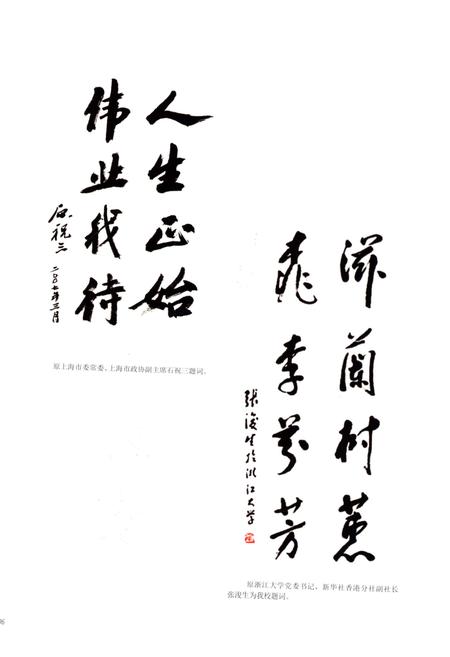 人生正始
伟业我待
石祝三
二〇〇七年三月
原上海市委常委、上海市政协副主席石祝三题词。
滋兰树蕙
桃李芬芳
张浚生于浙江大学
原浙江大学党委书记，新华社香港分社副社长
张浚生为我校题词。